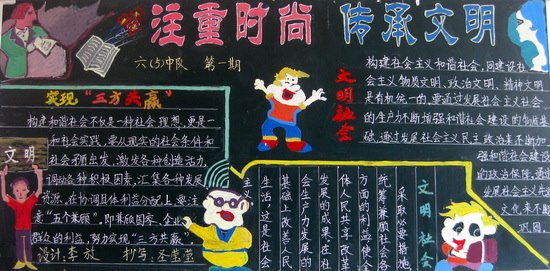 注重时尚 传承文明
六(5)中队 第一期
实现“三方共赢”
构建和谐社会不仅是一种社会理想,更是一
种社会实践,要从现实的社会条件和
社会矛盾出发,激发各种创造活力,
调动各种积极因素,汇集各种发展
资源,在协调具体利益分配上要注
意“五个兼顾”,即兼顾国家、企业
群众的利益,努力实现“三方共赢”。
设计:李放 抄写:
文明
文明社会
构建社会主义和谐社会,同建设社
会主义物质文明、政治文明、精神文明
是有机统一的,要通过发展社会主义社会
的生产力来不断增强和谐社会建设的物质基
础,通过发展社会主义民主政治来不断加
强和谐社会建设
的政治保障,通过
发展社会主义先进
文化来不断
巩固
文明社会
采取必要措施
统筹兼顾社会各
方面的利益,使全
体人民共享改革
发展的成果,在社
会生产力发展的
基础上改善人民
生活,这是社会
主义